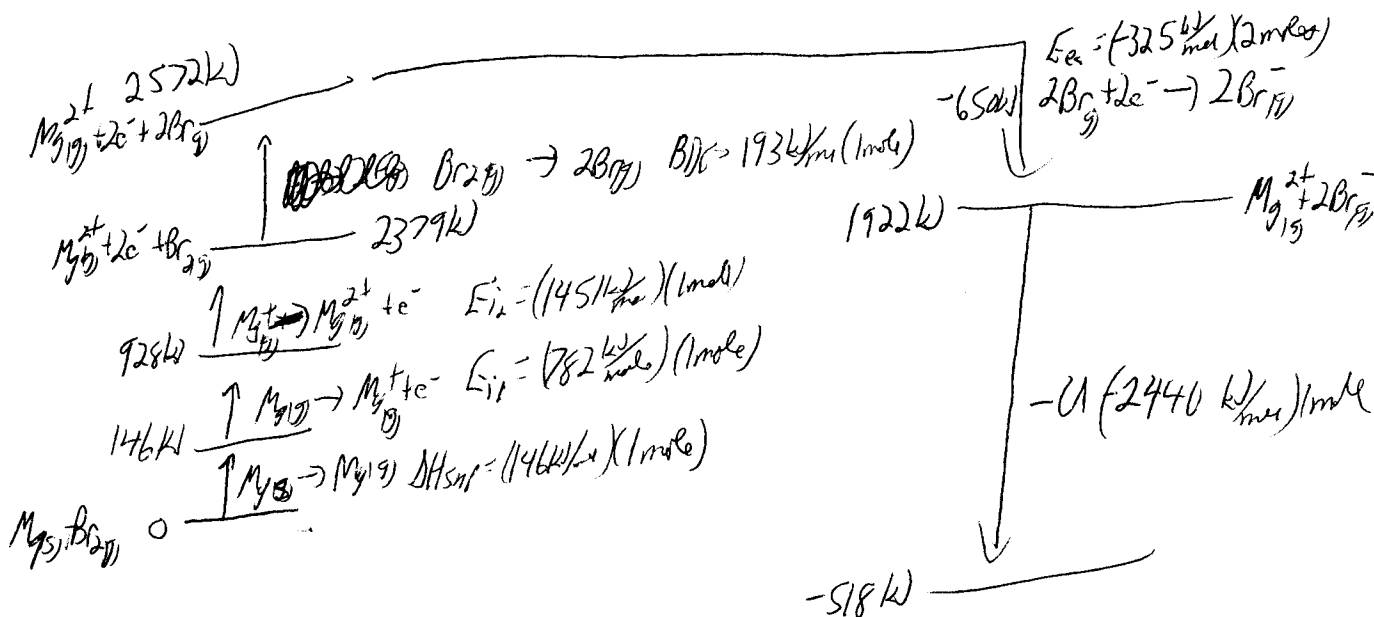 2572kJ
Mg²⁺(g)+2e⁻+2Br(g)
Eea=(-325 kJ/mol)(2moles)
-650kJ 2Br(g)+2e⁻→2Br⁻(g)
Br2(g)→2Br(g) BDE=193kJ/mol(1mole)
Mg²⁺(g)+2e⁻+Br2(g) 2379kJ
1922kJ Mg²⁺(g)+2Br⁻(g)
Mg⁺(g)→Mg²⁺(g)+e⁻ Ei2=(1451kJ/mol)(1mole)
928kJ
Mg(g)→Mg⁺(g)+e⁻ Ei1=(782kJ/mole)(1mole)
146kJ
-U(-2440 kJ/mol)1mole
Mg(s)→Mg(g) ΔHsub=(146kJ/mol)(1mole)
Mg(s),Br2(g) 0
-518kJ